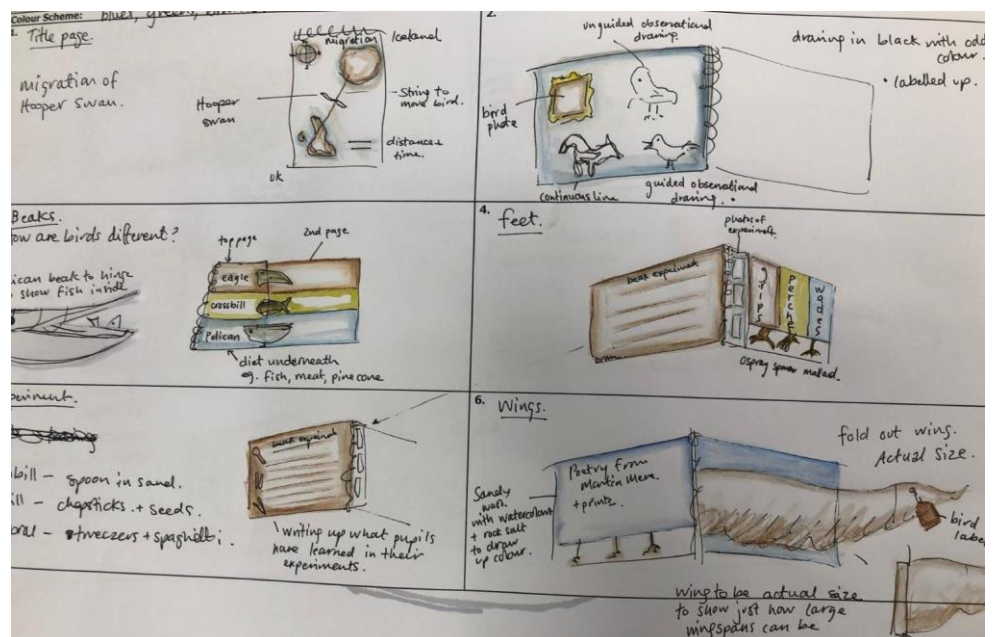 Colour Scheme: blues, greens,
1. Title page.
migration of
Hooper Swan.
migration
Iceland
Hooper
swan
String to
move bird.
distance +
time.
UK
2.
unguided observational
drawing.
bird
photo
continuous line
guided observational
drawing.
drawing in black with odd
colour.
• labelled up.
Beaks.
ow are birds different?
ican beak to hinge
show fish inside
top page
2nd page
eagle
crossbill
Pelican
diet underneath
eg. fish, meat, pinecone
4. feet.
photos of
experiment.
beak experiment
grips
Perche
wades
Ospray sparow mallard.
periment.
bill – spoon in sand.
ill – chopsticks + seeds.
oral – tweezers + spaghetti
beak experiment
writing up what pupils
have learned in their
experiments.
6. Wings.
Sandy
wash
with watercolours
+ rock salt
to draw
up colour.
Poetry from
Martin Mere.
+ prints.
fold out wing.
Actual Size.
bird
labe
wing to be actual size
to show just how large
wingspans can be